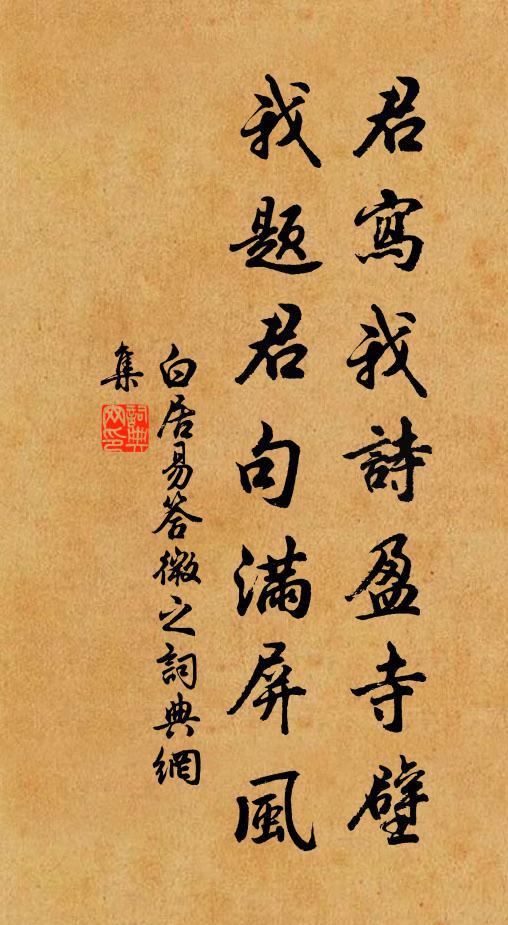 君寫我詩盈寺壁
我題君句滿屏風
白居易答微之詞典網
集
詞典网印